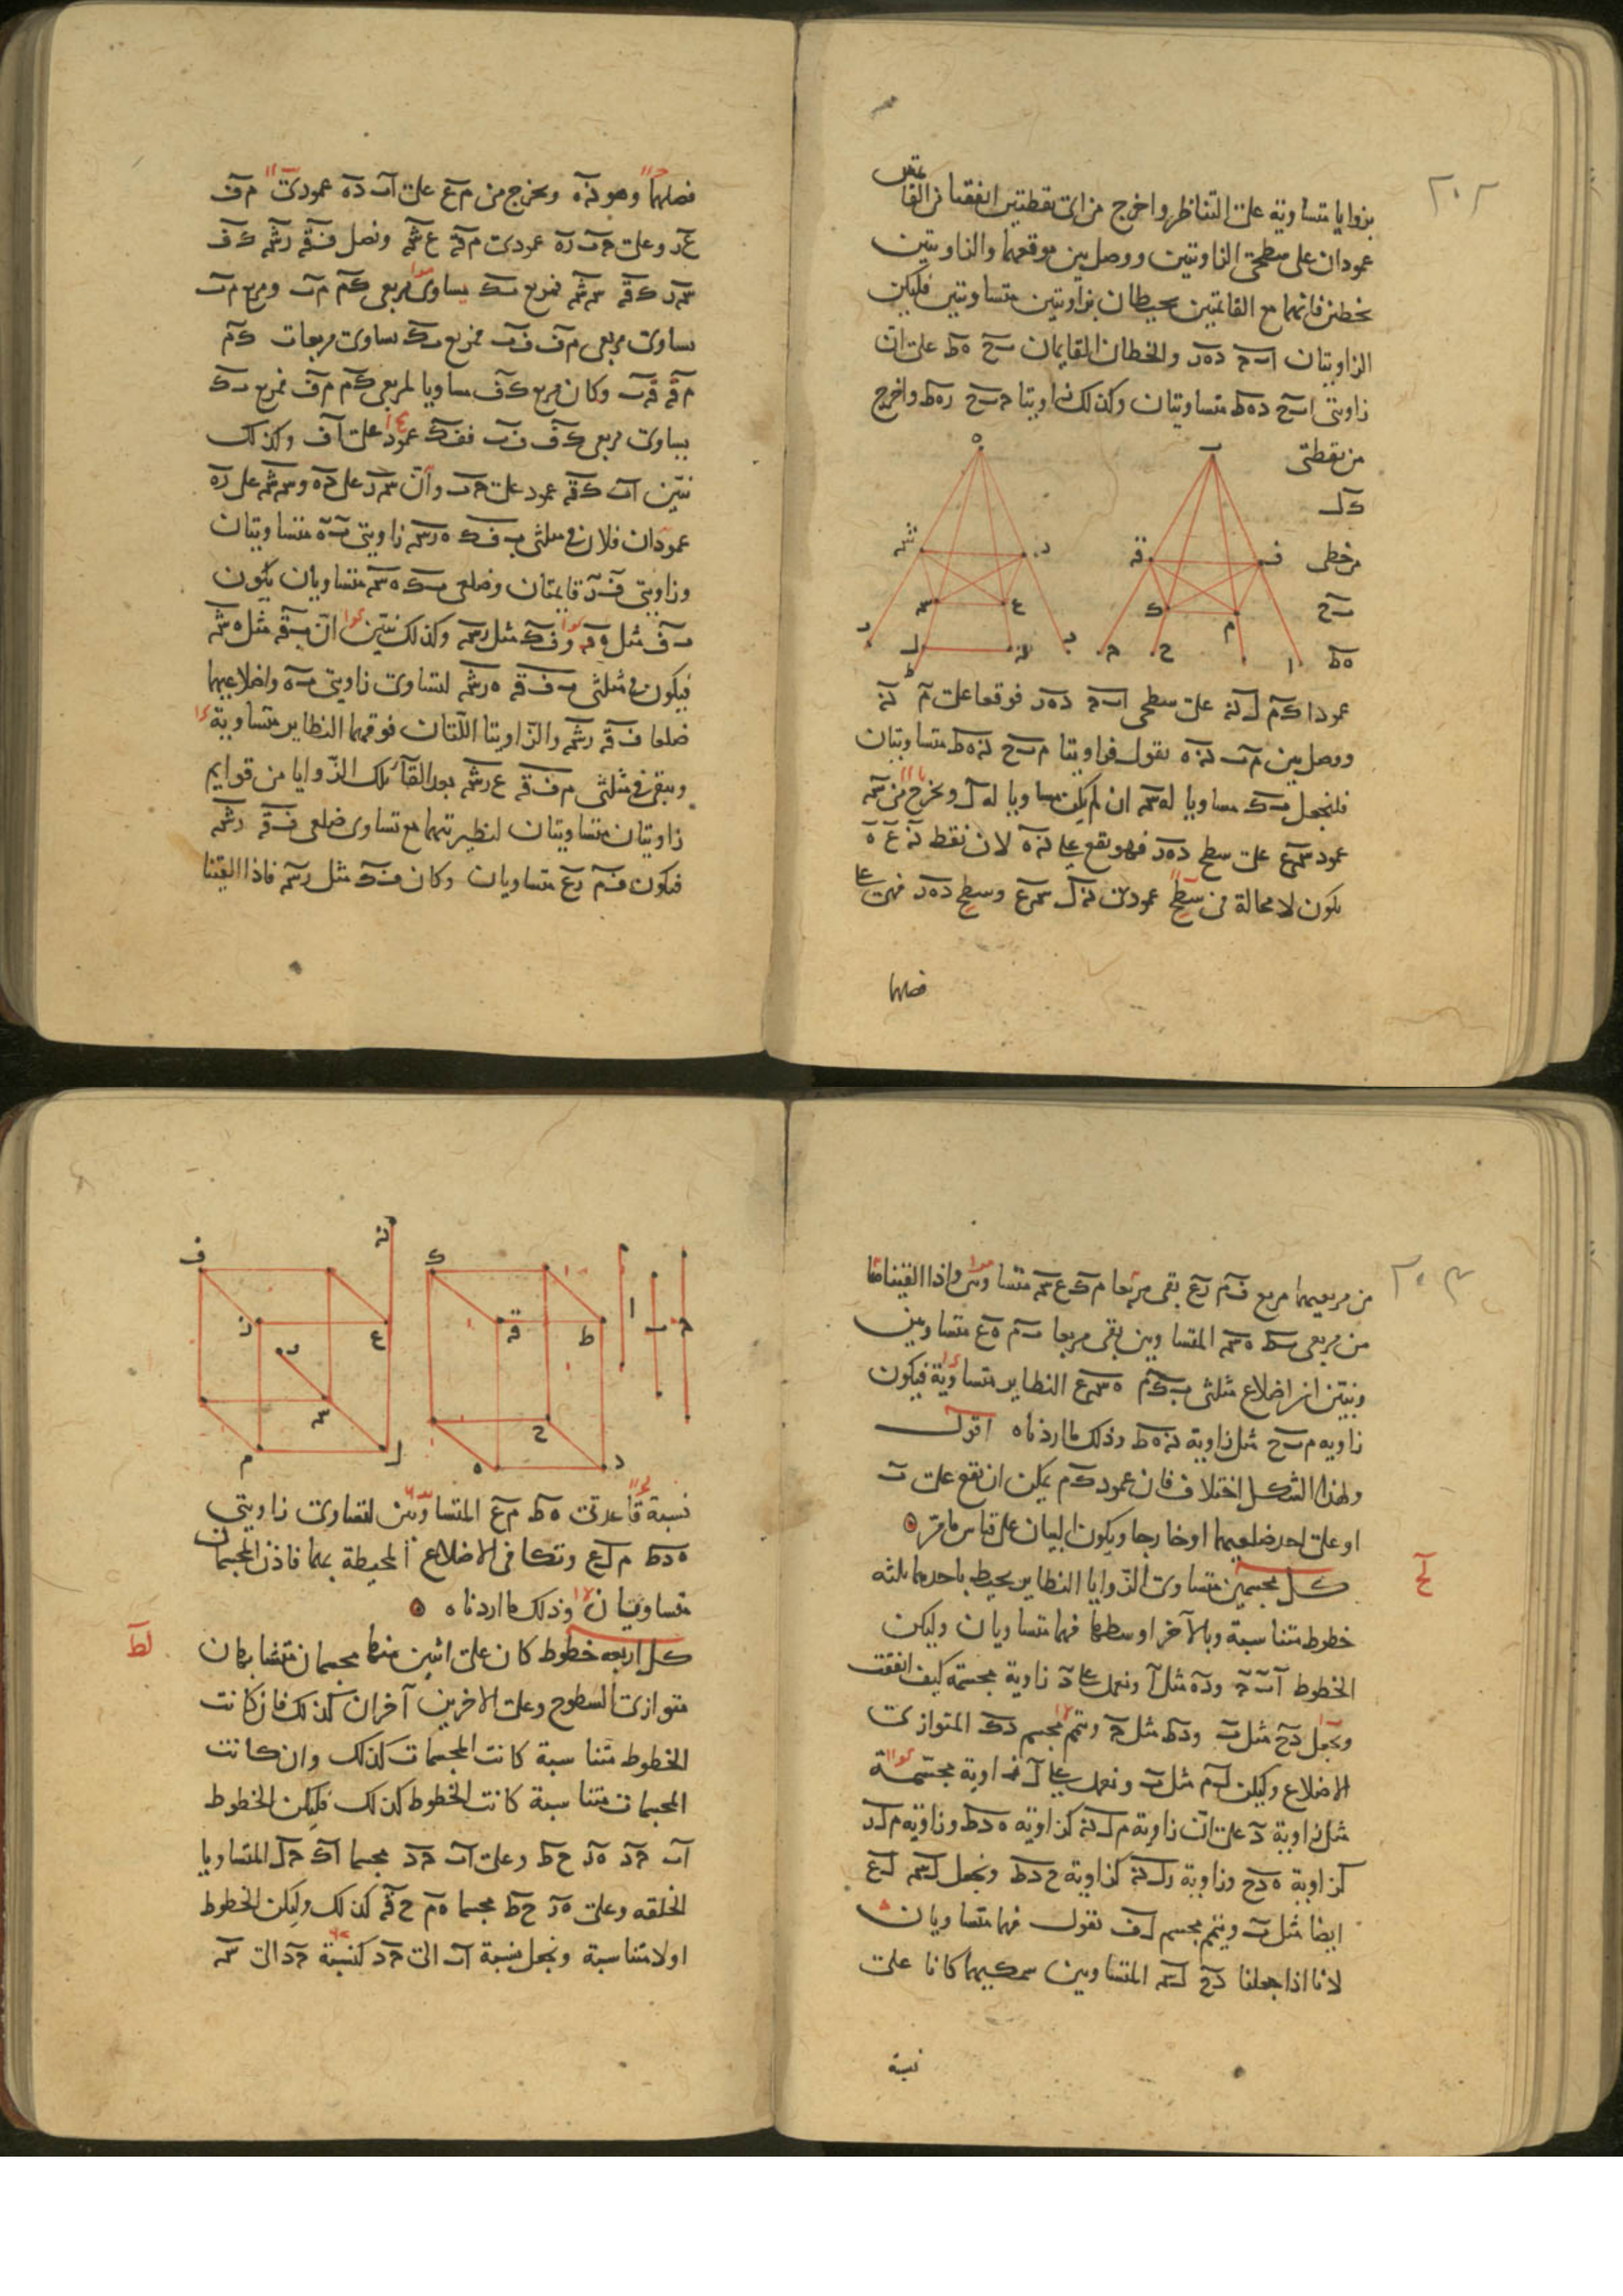 ٢٠٢
بزوايا متساوية على التناظر واخرج من اى نقطتين اتفقتا من القائمين
عمودان على سطحى الزاويتين ووصل بين موقعهما والزاويتين
بخطين فانهما مع القائمين يحيطان بزاويتين متساويتين فليكن
الزاويتان ابج دهر والخطان القايمان بح هط على ان
زاويتى ابح دهط متساويتان وكذلك زاويتا جبح رهط واخرج
من نقطتى
ك ل
من خطى
بح
هط
عمودا كم لن على سطحى ابج دهر فوقعا على م ن
ووصل بين مب نه نقول فزاويتا مبح نهط متساويتان
فلنجعل بك مساويا لهس ان لم يكن مساويا له ل ونخرج من س
عمود سع على سطح دهر فهو يقع على نه لان نقط ن ع ه
يكون لا محالة فى سطح عمودى نل سع وسطح دهر فهى على
فصلهما
فصلهما وهو نه ونخرج من م ع على اب ده عمودى مف
عر وعلى جب ره عمودى مق عش ونصل فق رش كف
سر كق سش فمربع بك يساوى مربعى كم مب ومربع مب
يساوى مربعى مف فب فمربع بك يساوى مربعات كم
مف فب وكان مربع كف مساويا لمربعى كم مف فمربع بك
يساوى مربعى كف فب ففك عمود على اف وكذلك
نبين ان كق عمود على جب وان سر على ده وسش على ره
عمودان فلان فى مثلثى بفك هرس زاويتى ب ه متساويتان
وزاويتى ف ر قايمتان وضلعى بك هس متساويان يكون
بف مثل هر وفك مثل رس وكذلك نبين ان بق مثل هش
فيكون فى مثلثى بفق هرش لتساوى زاويتى ب ه واضلاعهما
ضلعا فق رش والزاويتا اللتان فوقهما النظاير متساوية
ويبقى فى مثلثى مفق عرش بعد القآ تلك الزوايا من قوايم
زاويتان متساويتان لنظيرتيهما مع تساوى ضلعى فق رش
فيكون فم رع متساويان وكان فك مثل رس فاذا القينا
٢٠٣
من مربعيهما مربع فم رع بقى مربعا مك عس متساويين واذا القيناهما
من مربعى بك هس المتساويين بقى مربعا بم هع متساويين
ونبين ان اضلاع مثلثى بكم هسع النظاير متساوية فيكون
زاويه مبح مثل زاوية نهط وذلك ما اردناه اقول
ولهذا الشكل اختلاف فان عمود كم يمكن ان يقع على ب
او على احد ضلعيهما او خارجا ويكون البيان على قياس ما مر
لح
كل مجسمين متساوى الزوايا النظاير يحيط باحدهما ثلثه
خطوط متناسبة وبالآخر اوسطها فهما متساويان وليكن
الخطوط ا ب ج وده مثل ا ونعمل على د زاوية مجسمة كيف اتفقت
ونجعل دح مثل ب ودط مثل ج ونتم مجسم دك المتوازى
الاضلاع وليكن لم مثل ب ونعمل على ل زاوية مجسمة
مثل زاوية د على ان زاوية ملن كزاوية هدط وزاويه ملر
كزاوية هدح وزاوية رلن كزاوية حدط ونجعل لس لع
ايضا مثل ب ونتم مجسم لف نقول فهما متساويان
لانا اذا جعلنا دح لس المتساويين سمكيهما كانا على
نسبة
نسبة قاعدتى هط مع المتساويتين لتساوى زاويتى
هدط ملع وتكافى الاضلاع المحيطة بهما فاذن المجسمان
متساويان وذلك ما اردناه
لط
كل اربعه خطوط كان على اثنين منها مجسمان متشابهان
متوازى السطوح وعلى الاخرين آخران كذلك فان كانت
الخطوط متناسبة كانت المجسمات كذلك وان كانت
المجسمات متناسبة كانت الخطوط كذلك فليكن الخطوط
اب جد هر حط وعلى اب جد مجسما اك جل المتساويا
الخلقه وعلى هر حط مجسما هم حق كذلك وليكن الخطوط
اولا متناسبة ونجعل نسبة اب الى جد كنسبة جد الى س